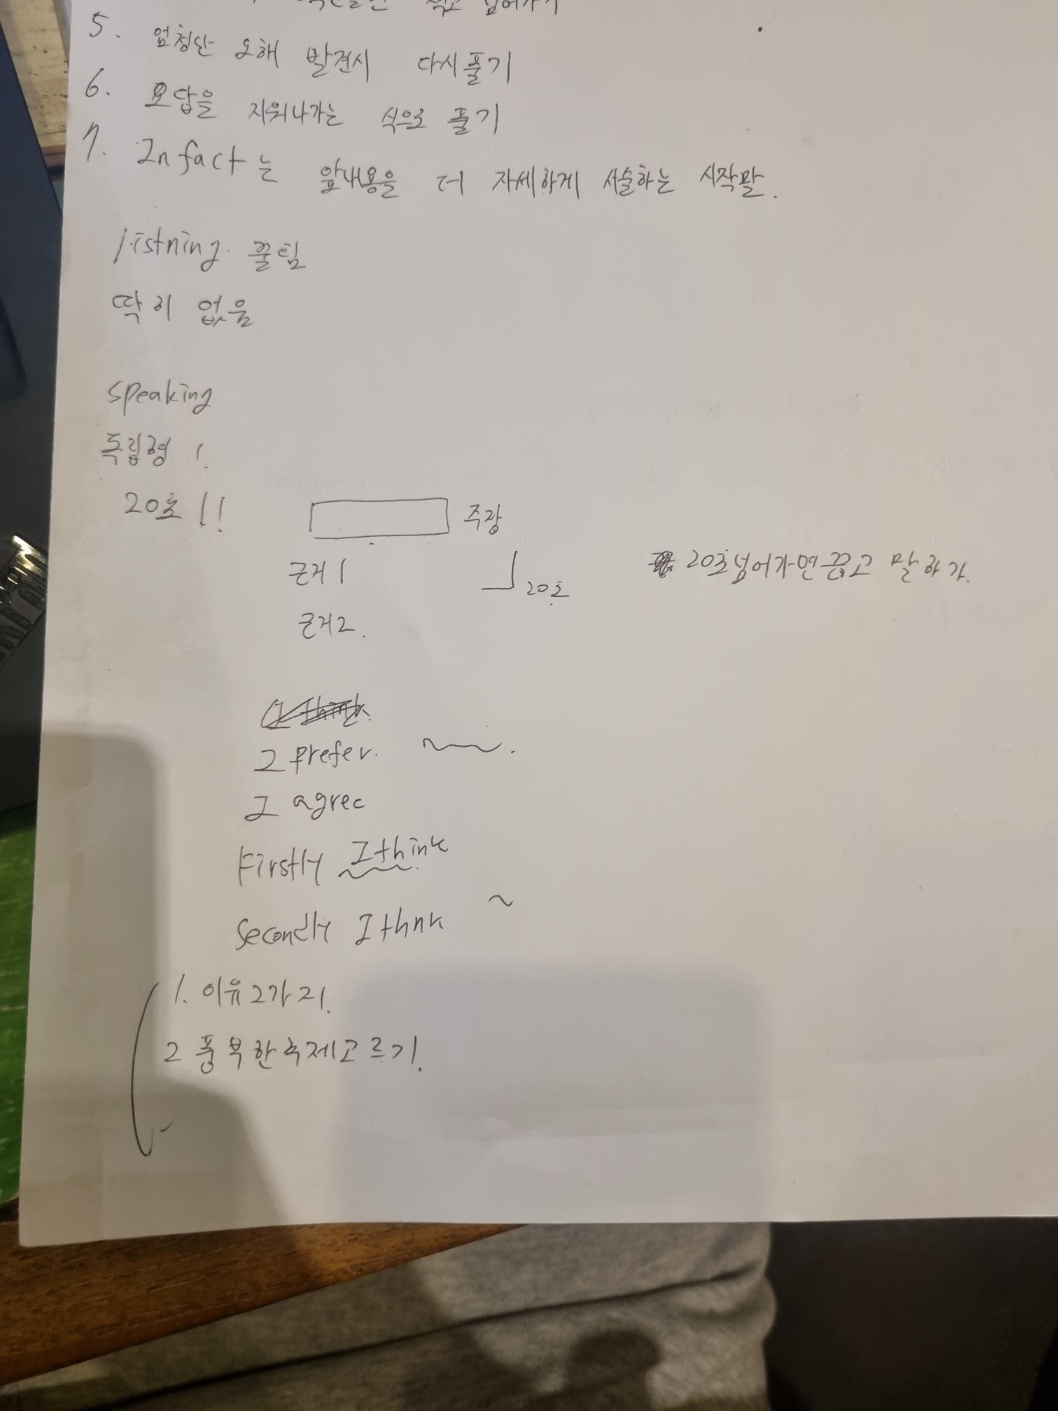 적고 넘어가기
5. 엄청난 오해 발견시 다시풀기
6. 오답을 지워나가는 식으로 풀기
7. In fact는 앞내용을 더 자세하게 서술하는 시작말.
listning. 꿀팁
딱히 없음
speaking
독립형 1.
20초!! 주장
근거1 20초 20초넘어가면끊고 말하기.
근거2.
I think
I prefer. ~.
I agree
Firstly I think
secondly I thnk ~
1. 이유2가지.
2 풍복한 주제고르기.